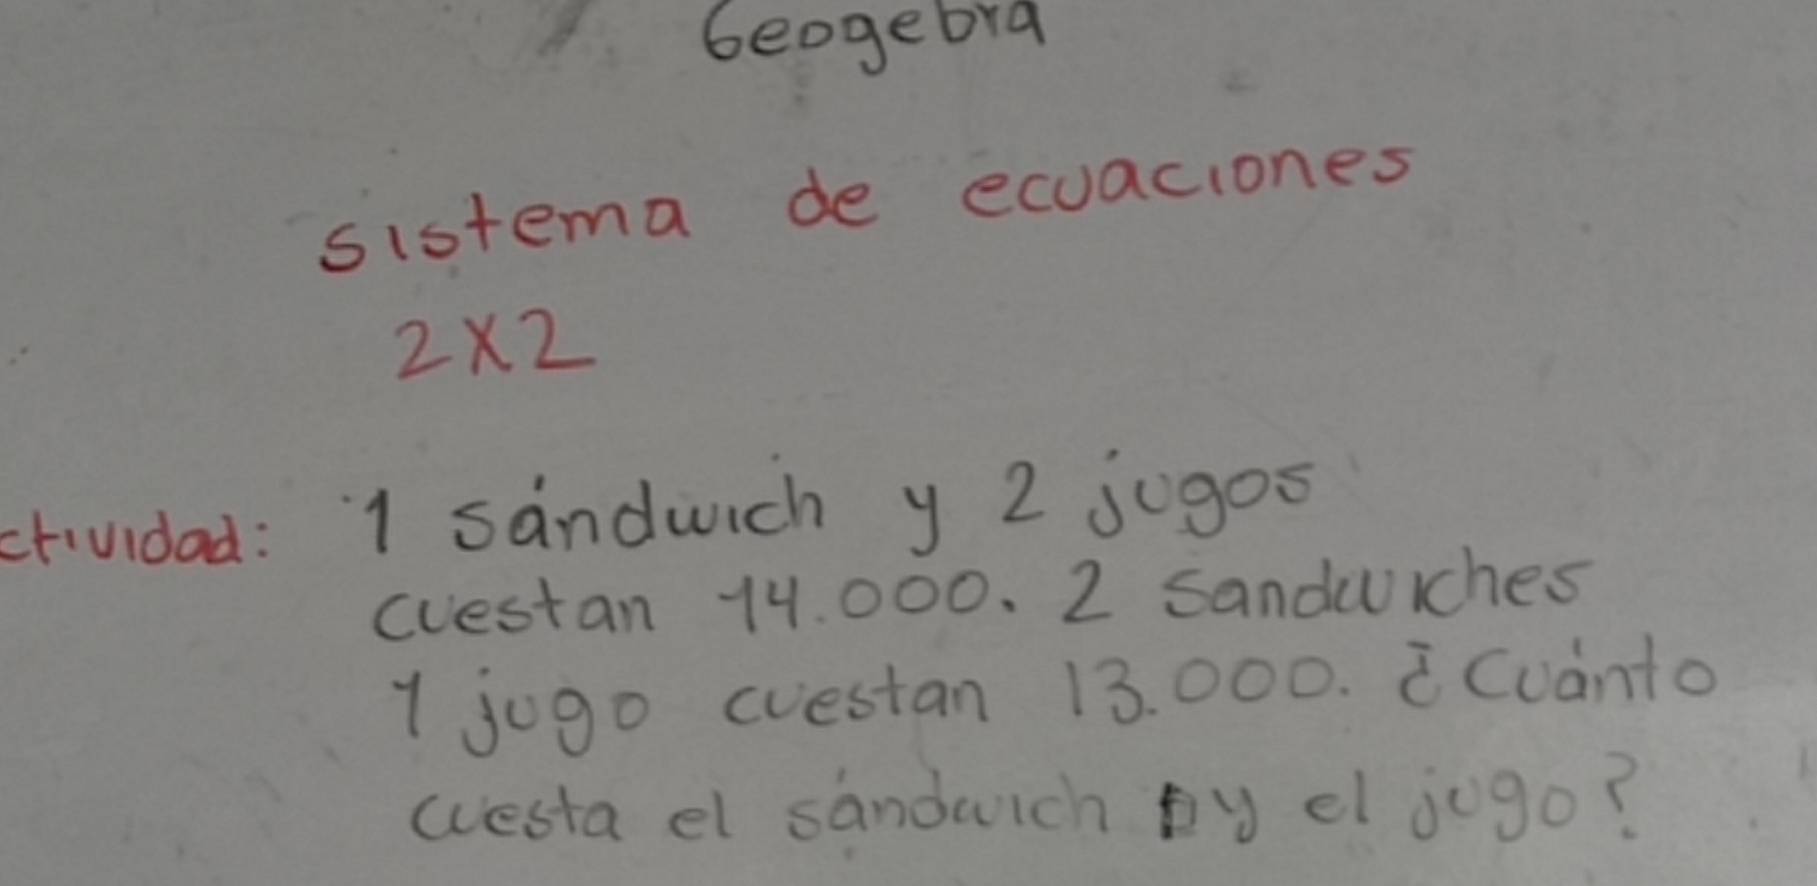 Geogebra
sistema de ecuaciones
2x2
ctividad: 1 sándwich y 2 jugos
cuestan 14.000. 2 sandwiches
1 jugo cuestan 13.000. ¿Cuánto
cuesta el sándwich y el jugo?